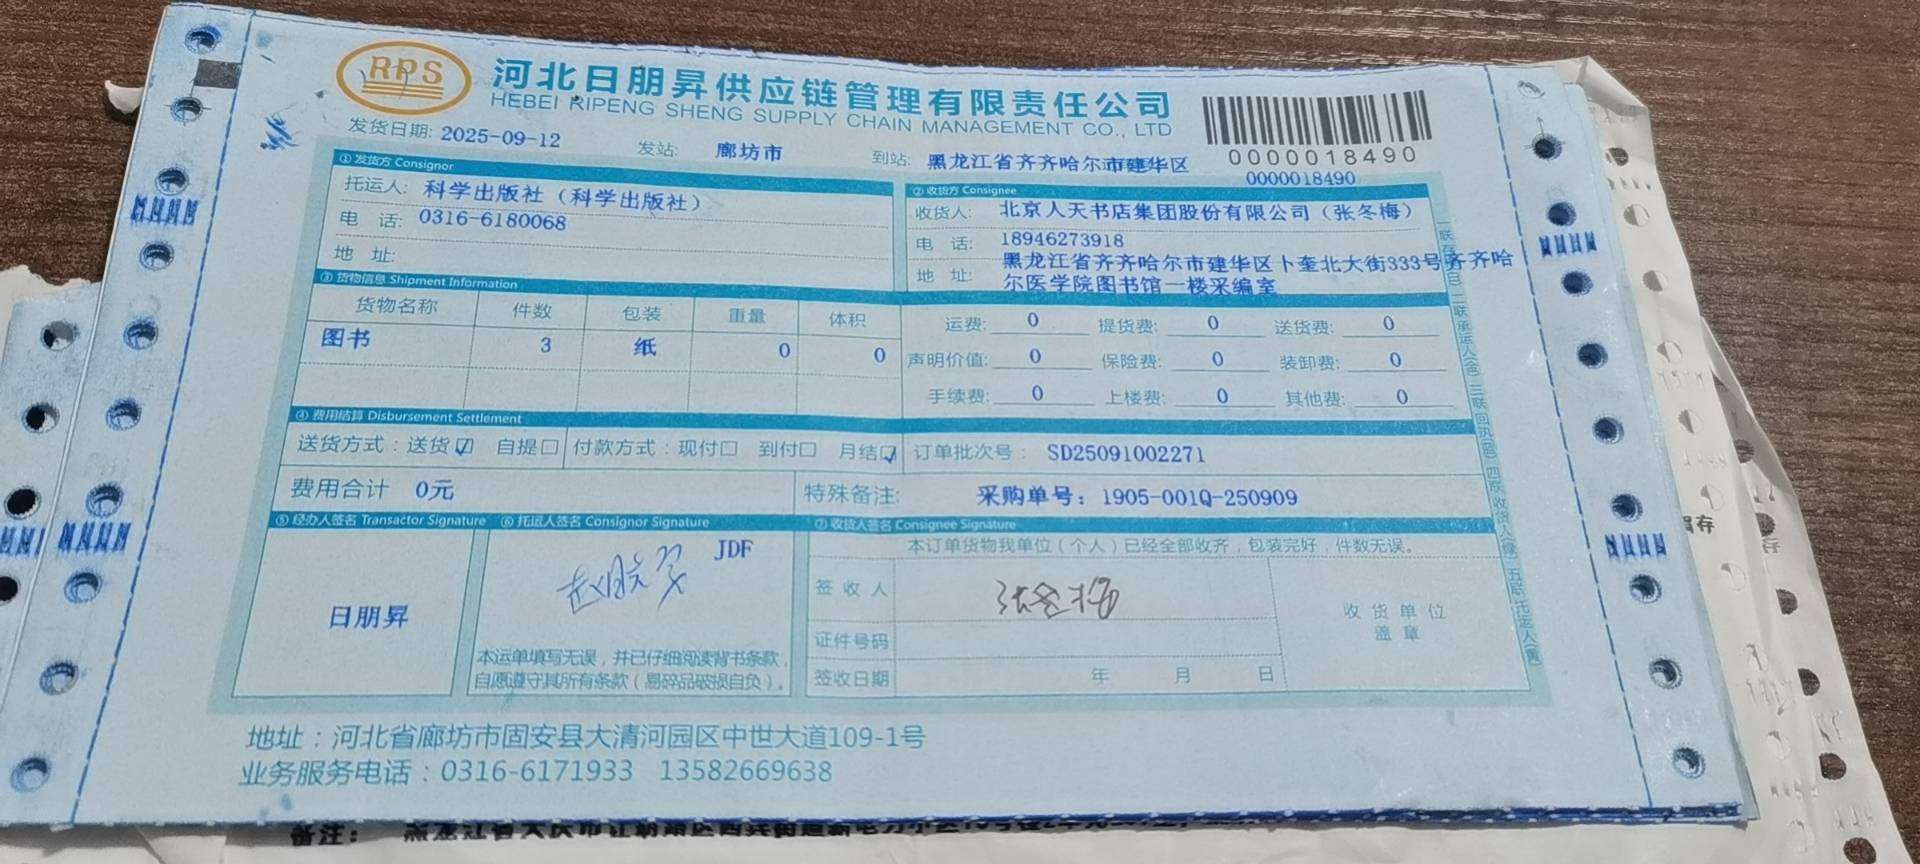 RPS
河北日朋昇供应链管理有限责任公司
HEBEI RIPENG SHENG SUPPLY CHAIN MANAGEMENT CO., LTD
0000018490
0000018490
发货日期: 2025-09-12 发站: 廊坊市 到站: 黑龙江省齐齐哈尔市建华区
① 发货方 Consignor
托运人: 科学出版社（科学出版社）
电 话: 0316-6180068
地 址:
② 收货方 Consignee
收货人: 北京人天书店集团股份有限公司（张冬梅）
电 话: 18946273918
地 址: 黑龙江省齐齐哈尔市建华区卜奎北大街333号齐齐哈
尔医学院图书馆一楼采编室
③ 货物信息 Shipment Information
货物名称 件数 包装 重量 体积
图书 3 纸 0 0
运费: 0 提货费: 0 送货费: 0
声明价值: 0 保险费: 0 装卸费: 0
手续费: 0 上楼费: 0 其他费: 0
④ 费用结算 Disbursement Settlement
送货方式：送货☑ 自提☐ 付款方式：现付☐ 到付☐ 月结☑ 订单批次号： SD25091002271
费用合计 0元 特殊备注: 采购单号：1905-001Q-250909
⑤ 经办人签名 Transactor Signature ⑥ 托运人签名 Consignor Signature ⑦ 收货人签名 Consignee Signature
日朋昇
JDF
本运单填写无误，并已仔细阅读背书条款，
自愿遵守其所有条款（易碎品破损自负）。
本订单货物我单位（个人）已经全部收齐，包装完好，件数无误。
签 收 人 张冬梅
证件号码
签收日期 年 月 日
收 货 单 位
盖 章
地址：河北省廊坊市固安县大清河园区中世大道109-1号
业务服务电话：0316-6171933 13582669638
备注：